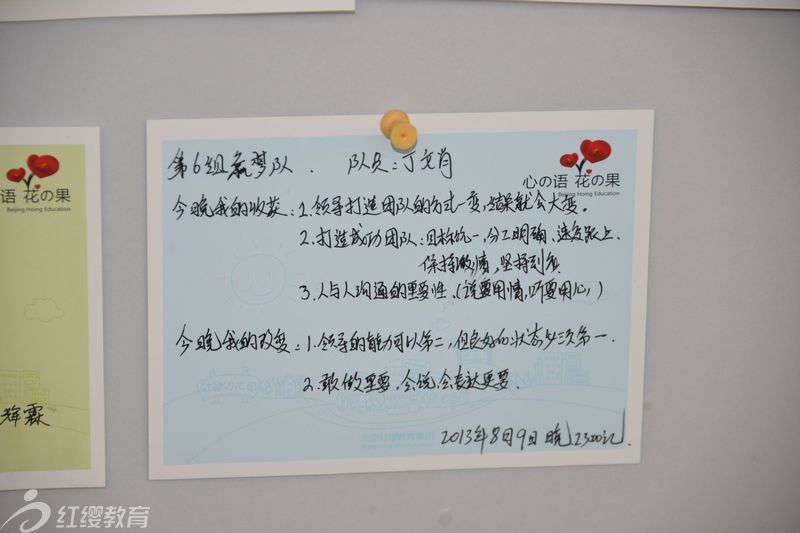 第6组 筑梦队. 队员：丁文肖
心の语 花の果
Beijing Hoing Education
今晚我的收获：1.领导打造团队的方式一变，结果就会大变。
2.打造成功团队：目标统一，分工明确，速度跟上.
保持激情，坚持到底
3.人与人沟通的重要性.（说要用情，听要用心）
今晚我的改变：1.领导的能力可以第二，但良好的状态必须第一.
2.敢做重要，会说会表达更要.
2013年8月9日 晚 23:00记.
语 花の果
Beijing Hoing Education
辉霖
红缨教育